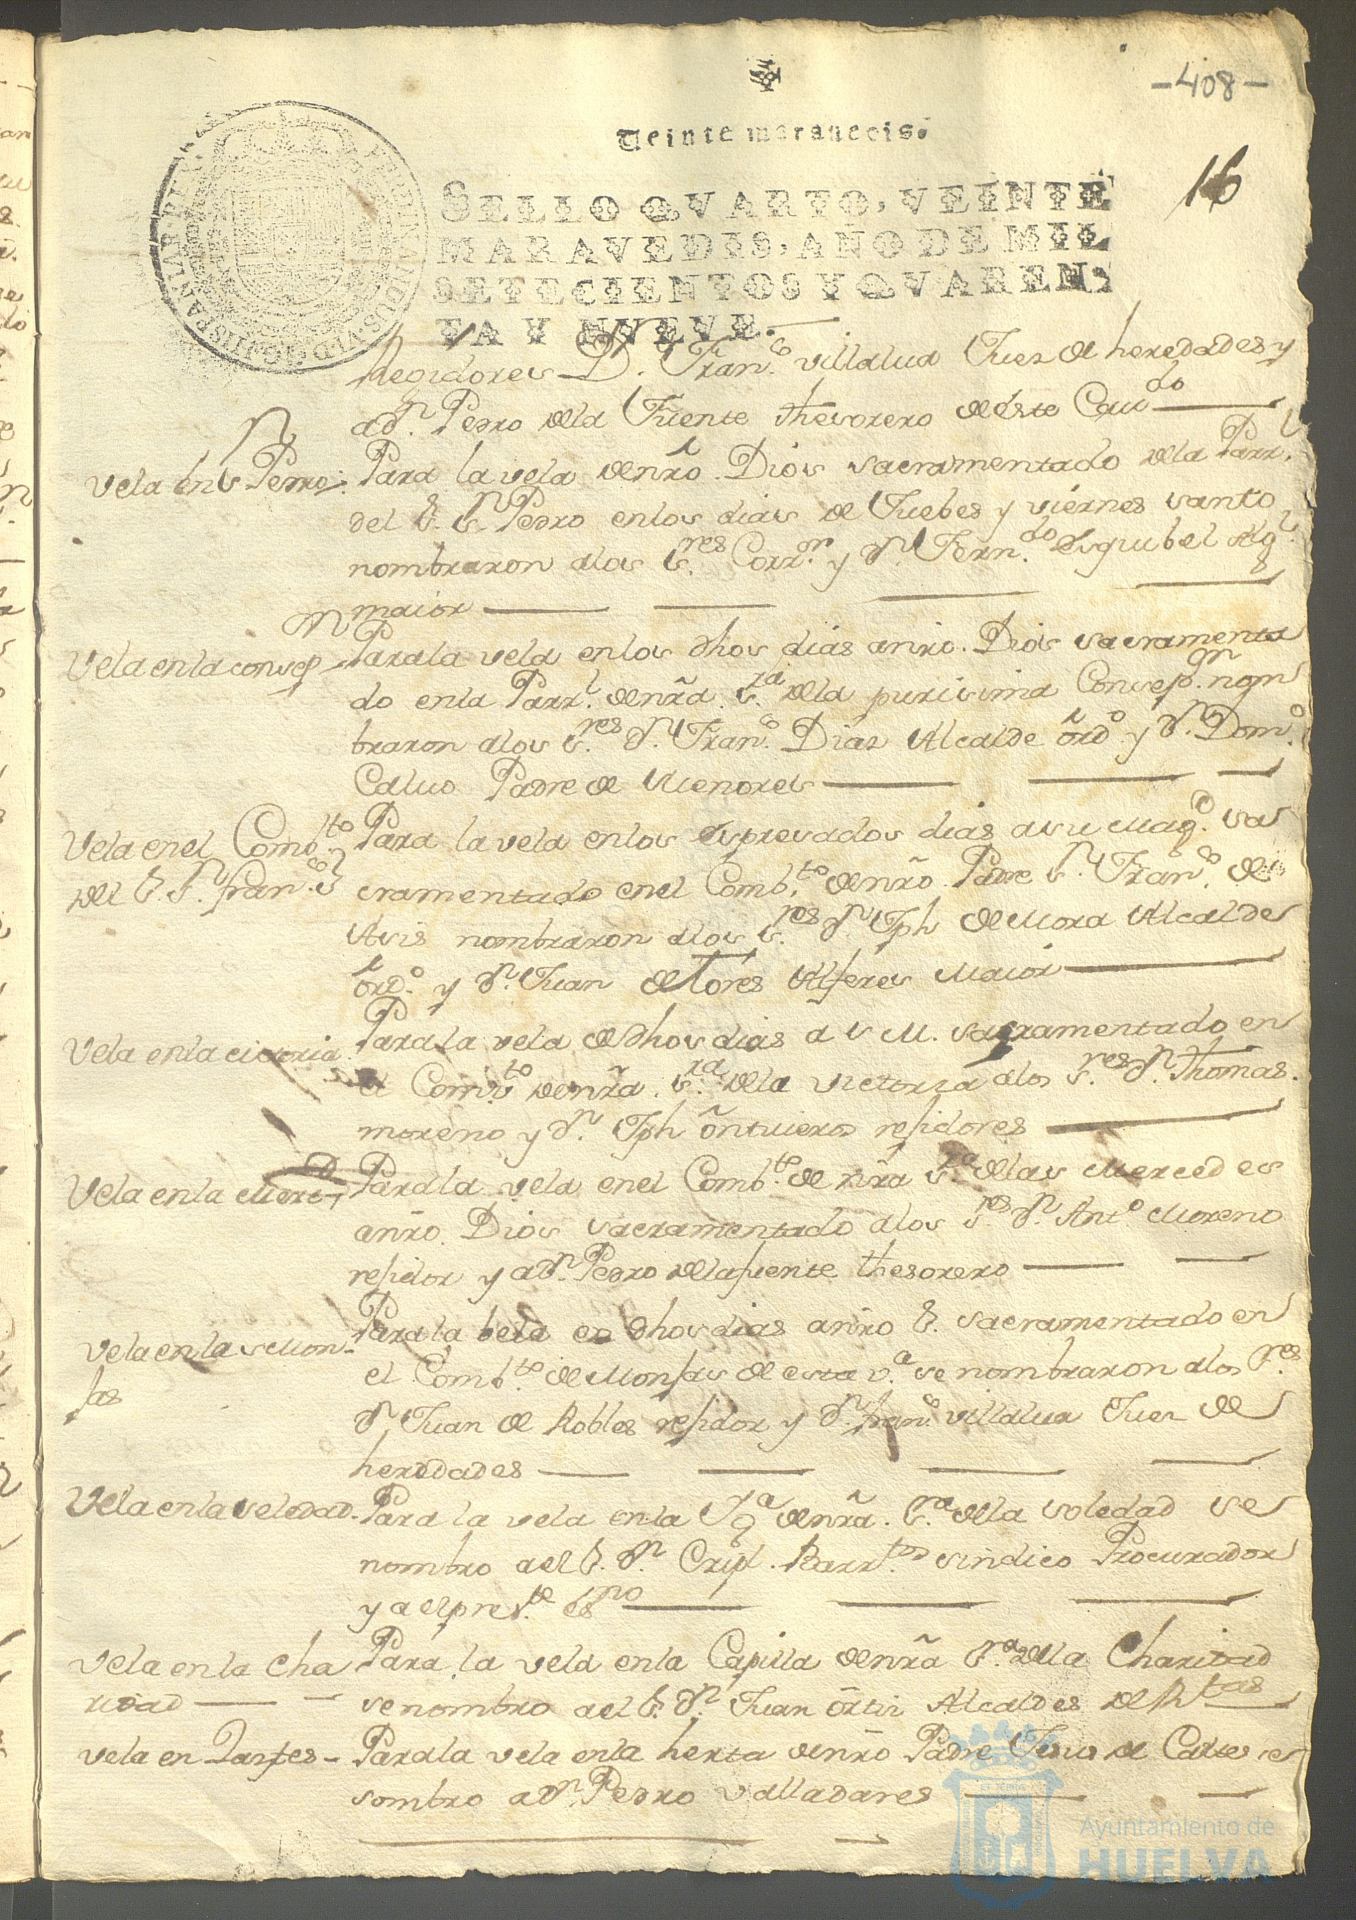 -408-
16
Veinte maravedis.
SELLO QVARTO, VEINTE
MARAVEDIS, AÑO DE MIL
SETECIENTOS Y QVAREN,
TA Y NVEVE.
Regidores D. Franco. villalua Juez de heredades y
a dn. Pedro dela Fuente thesorero de este Caudo
Vela en Sn Pedro. Para la vela denro. Dios sacramentado dela Parrl.
del S. Sn. Pedro enlos dias de Juebes y viernes santo
nombraron alos Sres. Corror. y dn. Ferndo. Esquibel Algl.
maior
Vela en la consepn Parala vela enlos dhos dias anro. Dios sacramenta
do enla Parrl. denrã. Sra. dela purissima Consepn. nom
braron alos Sres. dn. Franco. Dias Alcalde ordo. y dn. Domo.
Caluo Padre de Menores
Vela en el Combto Para la vela enlos espresados dias asu Magd. sa
del S. Sn. Franco. cramentado enel Combto. denro. Padre Sn. Franco. de
Asis nombraron alos Sres. dn. Jph de Mora Alcalde
ordo. y dn. Juan de Tores Alferes Maior
Vela enla victoria Parala vela de dhos dias a S M. sacramentado en
el Combto. denrã. Sra. dela victoria alos Sres. dn. Thomas.
moreno y dn. Jph ontiueros residores
Vela en la Merced Parala vela enel Combto. de nrã Sra. delas Mercedes
anro. Dios sacramentado alos Sres. dn. Anto. Moreno
residor y a dn. Pedro delafuente thesorero
vela en las Mon-
jas
Parala bela en dhos dias anro S. sacramentado en
el Combto. de Monjas de esta va. se nombraron alos Sres
dn. Juan de Robles residor y dn. Franco. villalua Juez de
heredades
Vela en la soledad. Para la vela enla Yga. denrã. Sra. dela soledad se
nombro a el S. dn. Cripl. Barrtos. sindico Procurador
y a el preste. esno
vela en la cha
ridad
Para la vela en la Capilla denrã Sra. dela Charidad
se nombro a el S. dn. Juan ortis Alcaldes de Rtas
vela en Parala vela enla denro Padre Jesus de
nombro a dn. Pedro Valladares
Ayuntamiento de
HUELVA